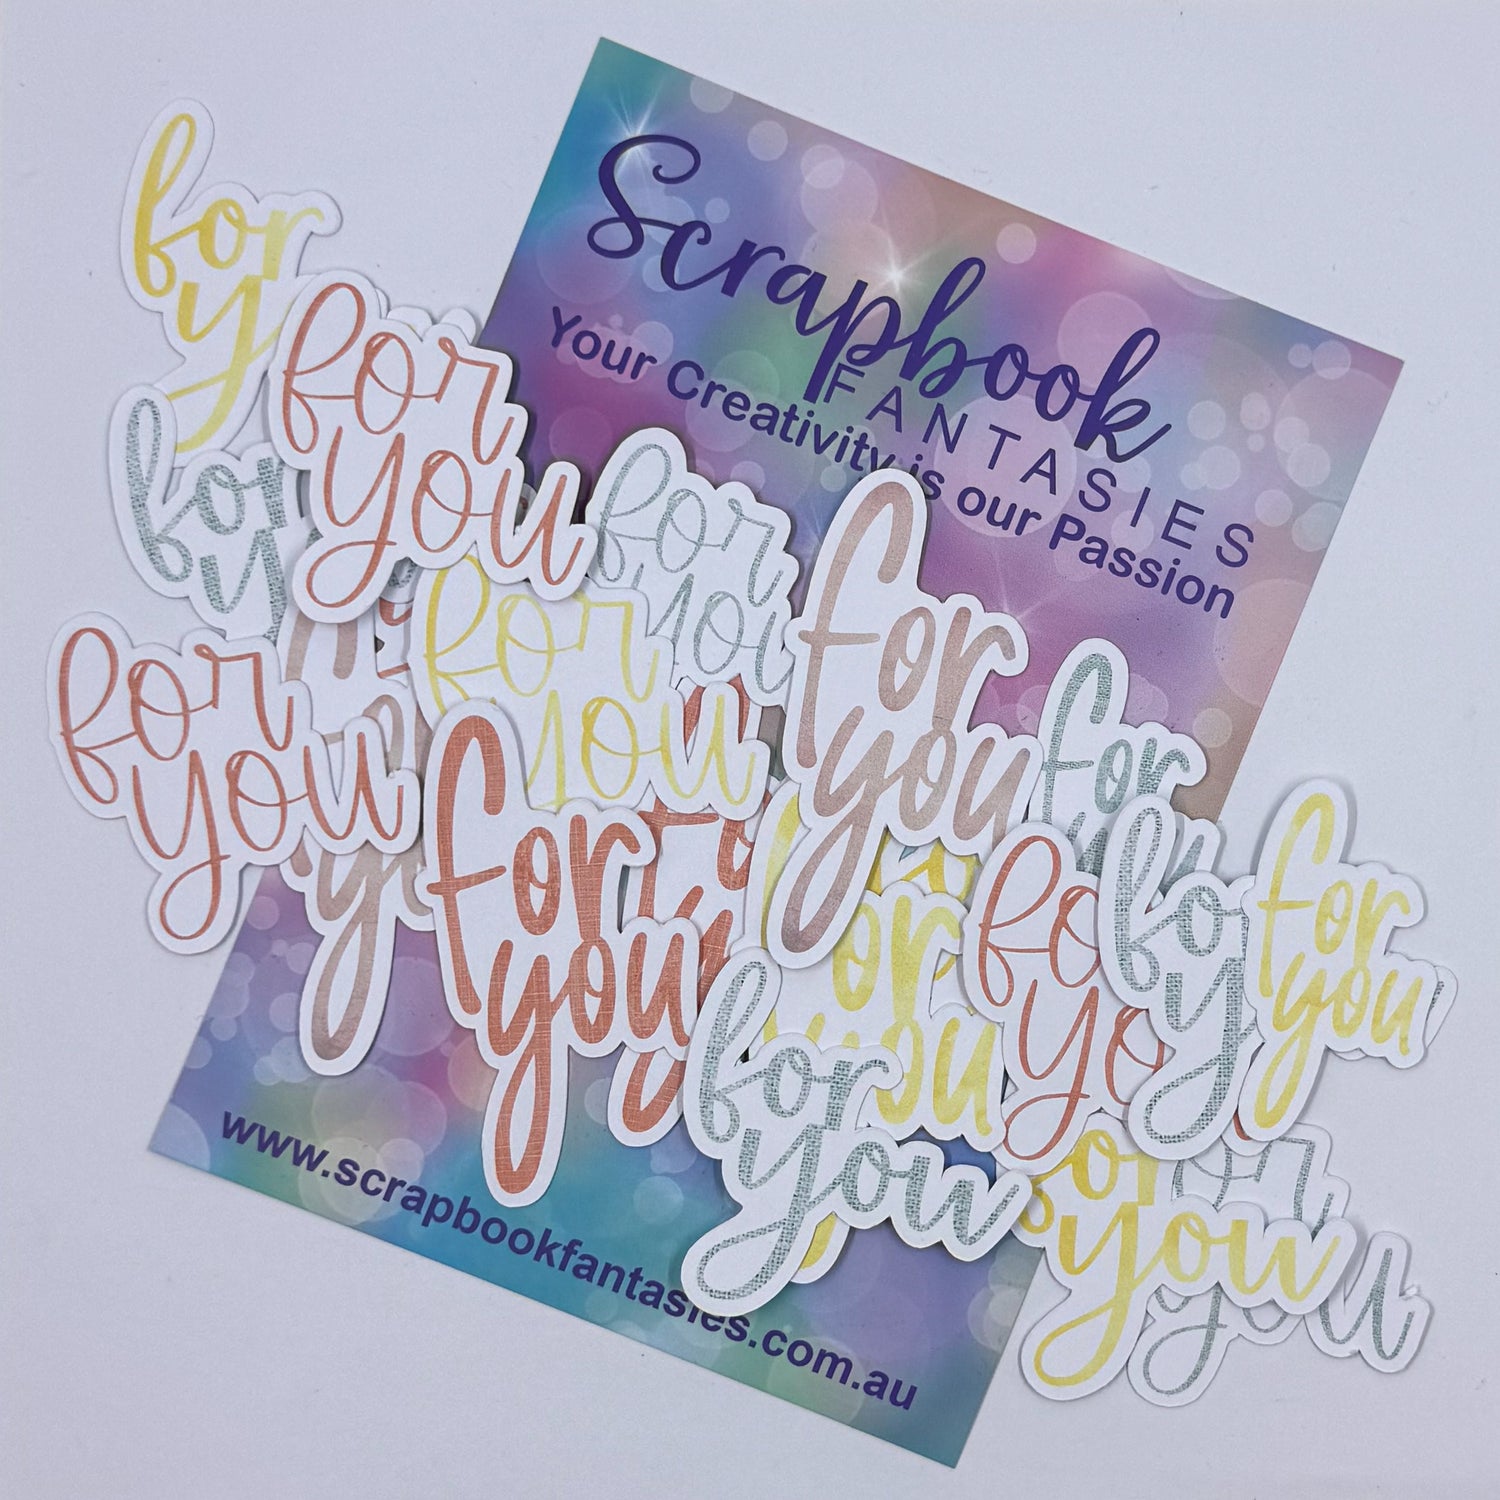 Scrapbook
FANTASIES
Your Creativity is our Passion
for
y
for
you
for
y
for
you
for
you
for
you
for
you
for
you
for
for
yo
for
y
for
you
for
you
or
you
or
you
www.scrapbookfantasies.com.au